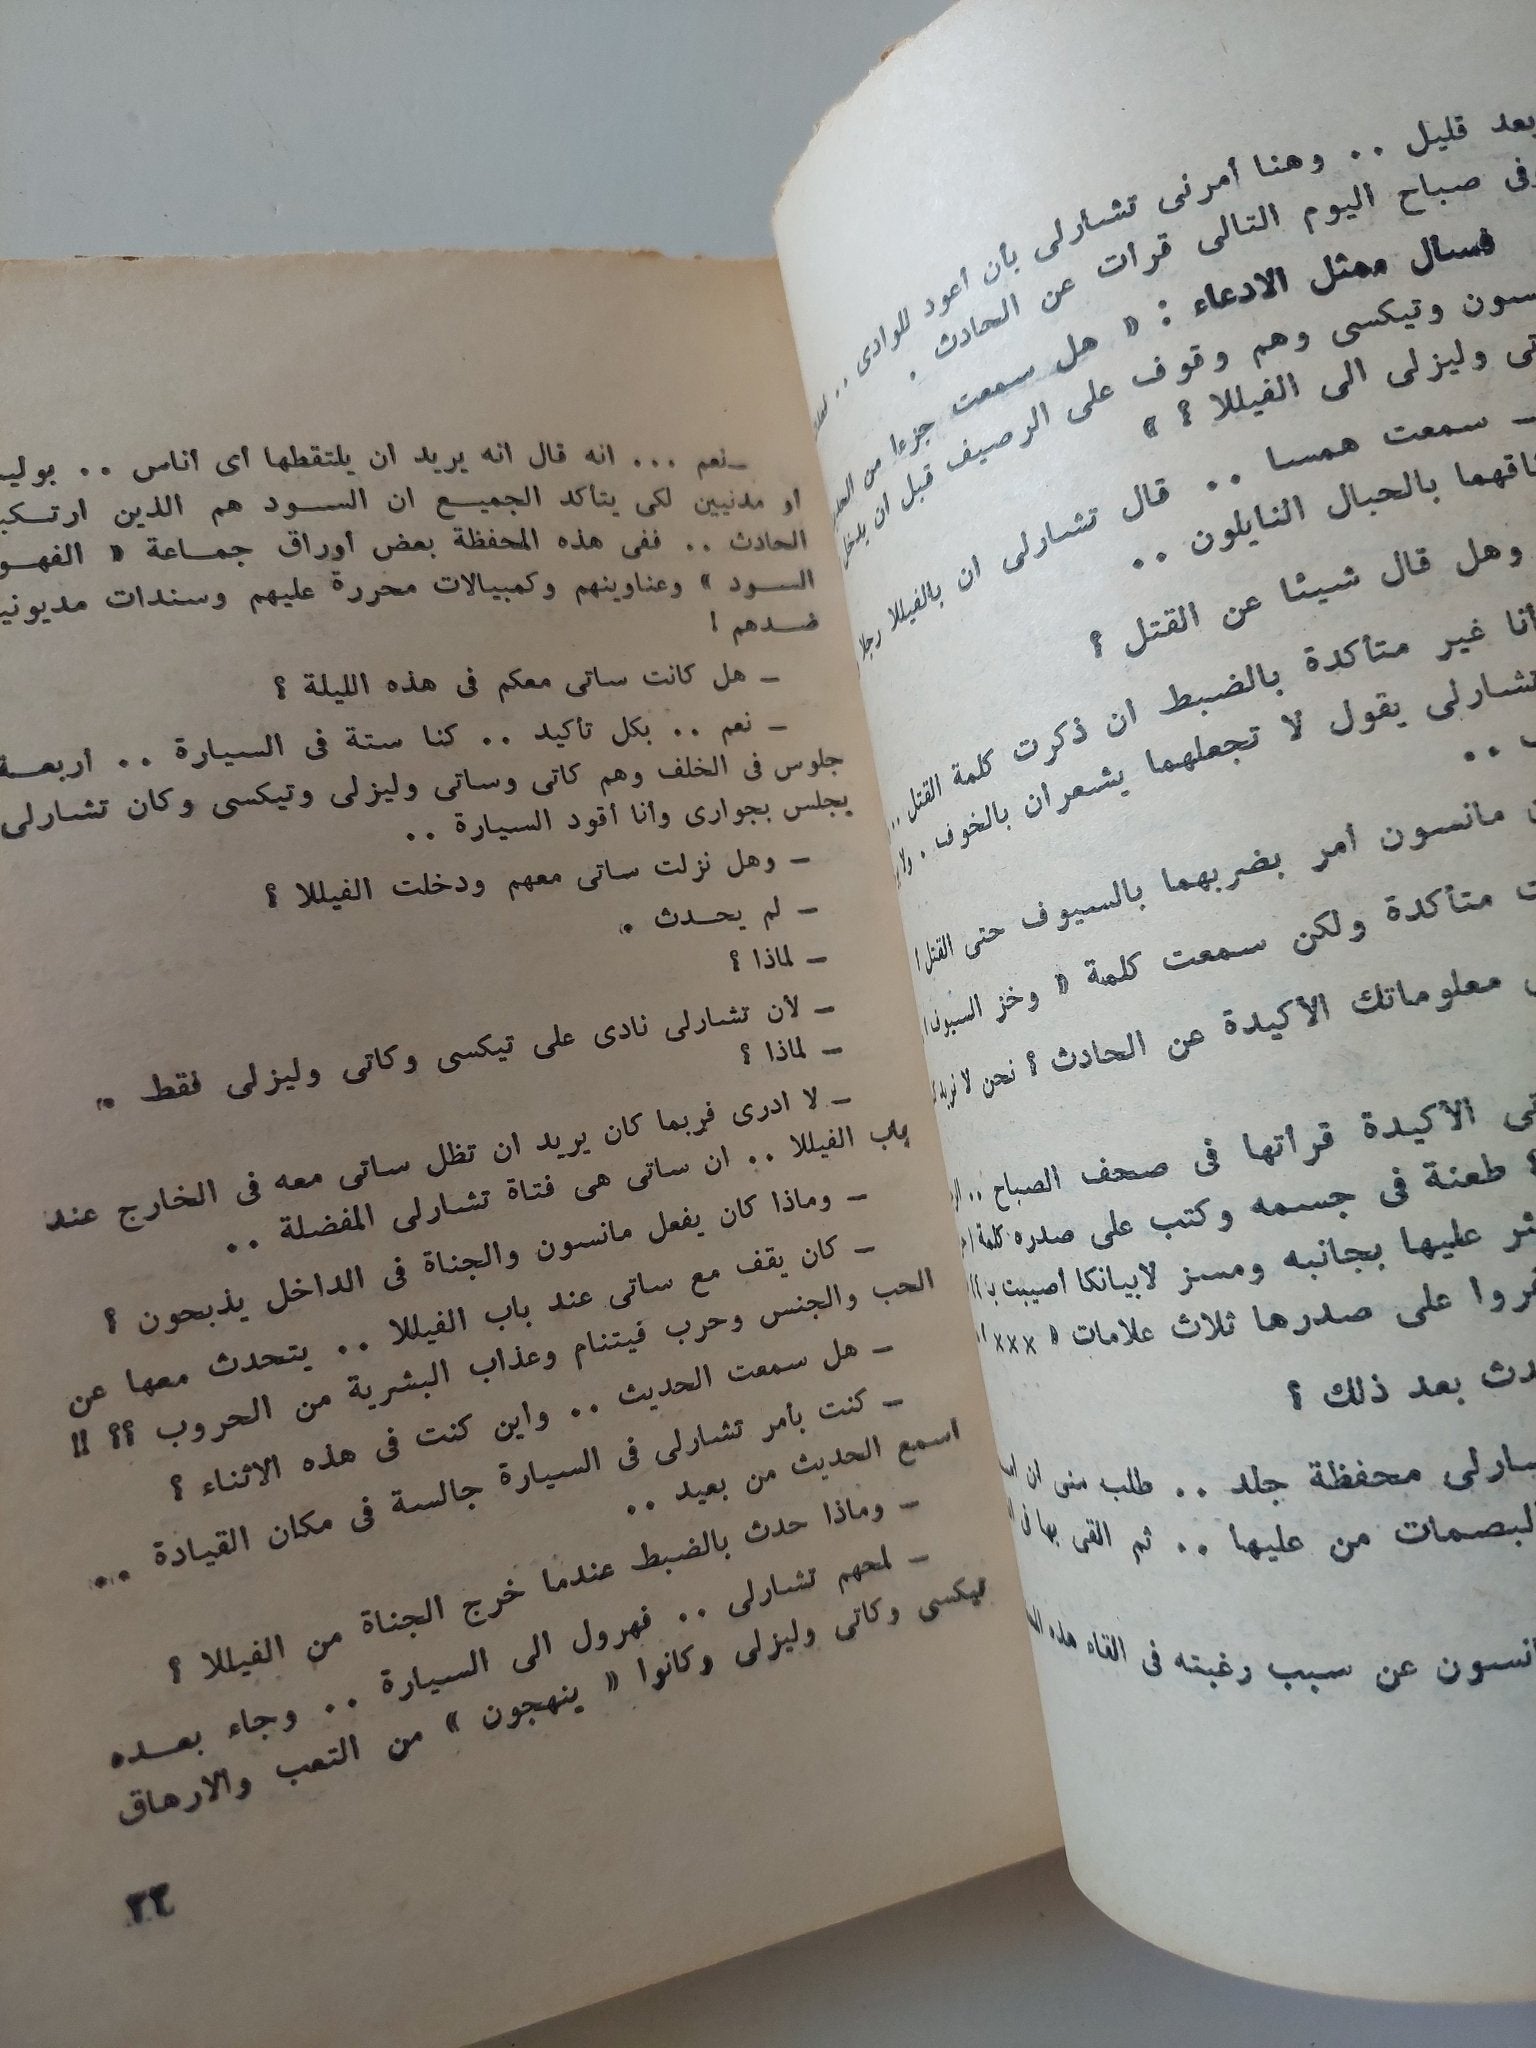 بعد قليل .. وهنا أمرنى تشارلى بأن أعود للوادى ..
وفى صباح اليوم التالى قرأت عن الحادث .
فسأل ممثل الادعاء : « هل سمعت جزءا من
سون وتيكسى وهم وقوف على الرصيف قبل ان يدخل
تى وليزلى الى الفيللا ؟ »
ـ سمعت همسا .. قال تشارلى ان بالفيللا رجلا
ثاقهما بالحبال النايلون ..
وهل قال شيئا عن القتل ؟
أنا غير متأكدة بالضبط ان ذكرت كلمة القتل ..
تشارلى يقول لا تجعلهما يشعران بالخوف .
..
مانسون أمر بضربهما بالسيوف حتى القتل !
ت متأكدة ولكن سمعت كلمة « وخز السيوف
معلوماتك الأكيدة عن الحادث ؟ نحن لا نريد
تى الأكيدة قرأتها فى صحف الصباح ..
طعنة فى جسمه وكتب على صدره كلمة
ثر عليها بجانبه ومسز لابيانكا أصيبت بـ
فروا على صدرها ثلاث علامات « xxx
دث بعد ذلك ؟
شارلى محفظة جلد .. طلب منى ان
لبصمات من عليها .. ثم القى بها فى
انسون عن سبب رغبته فى القاء هذه
ـ نعم ... انه قال انه يريد ان يلتقطها أى أناس .. بوليس
او مدنيين لكى يتأكد الجميع ان السود هم الذين ارتكبوا
الحادث .. ففى هذه المحفظة بعض أوراق جماعة « الفهود
السود » وعناوينهم وكمبيالات محررة عليهم وسندات مديونية
ضدهم !
ـ هل كانت ساتى معكم فى هذه الليلة ؟
ـ نعم .. بكل تأكيد .. كنا ستة فى السيارة .. أربعة
جلوس فى الخلف وهم كاتى وساتى وليزلى وتيكسى وكان تشارلى
يجلس بجوارى وأنا أقود السيارة ..
ـ وهل نزلت ساتى معهم ودخلت الفيللا ؟
ـ لم يحدث .
ـ لماذا ؟
ـ لأن تشارلى نادى على تيكسى وكاتى وليزلى فقط .
ـ لماذا ؟
ـ لا ادرى فربما كان يريد ان تظل ساتى معه فى الخارج عند
باب الفيللا .. ان ساتى هى فتاة تشارلى المفضلة ..
ـ وماذا كان يفعل مانسون والجناة فى الداخل يذبحون ؟
ـ كان يقف مع ساتى عند باب الفيللا .. يتحدث معها عن
الحب والجنس وحرب فيتنام وعذاب البشرية من الحروب ؟؟ !!
ـ هل سمعت الحديث .. واين كنت فى هذه الاثناء ؟
ـ كنت بأمر تشارلى فى السيارة جالسة فى مكان القيادة ...
اسمع الحديث من بعيد ..
ـ وماذا حدث بالضبط عندما خرج الجناة من الفيللا ؟
ـ لمحهم تشارلى .. فهرول الى السيارة .. وجاء بعده
تيكسى وكاتى وليزلى وكانوا « ينهجون » من التعب والارهاق
٢٣